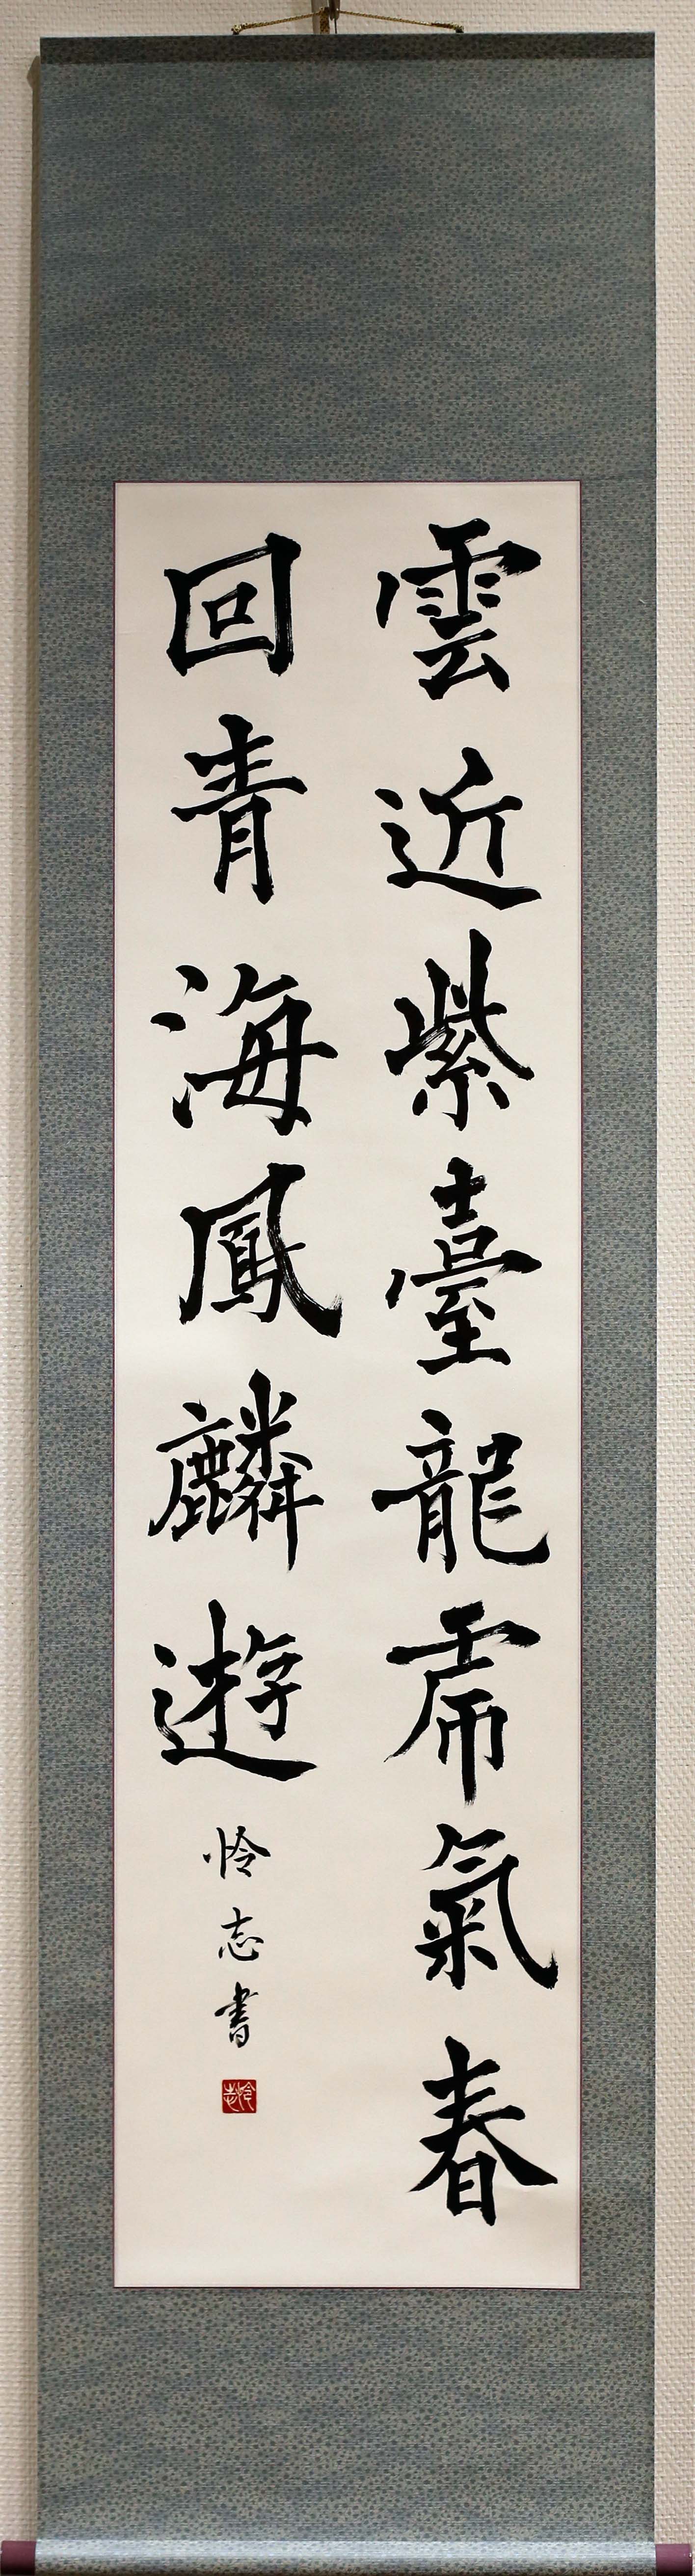 雲近紫臺龍虎氣春
回青海鳳麟遊
怜志書
怜志